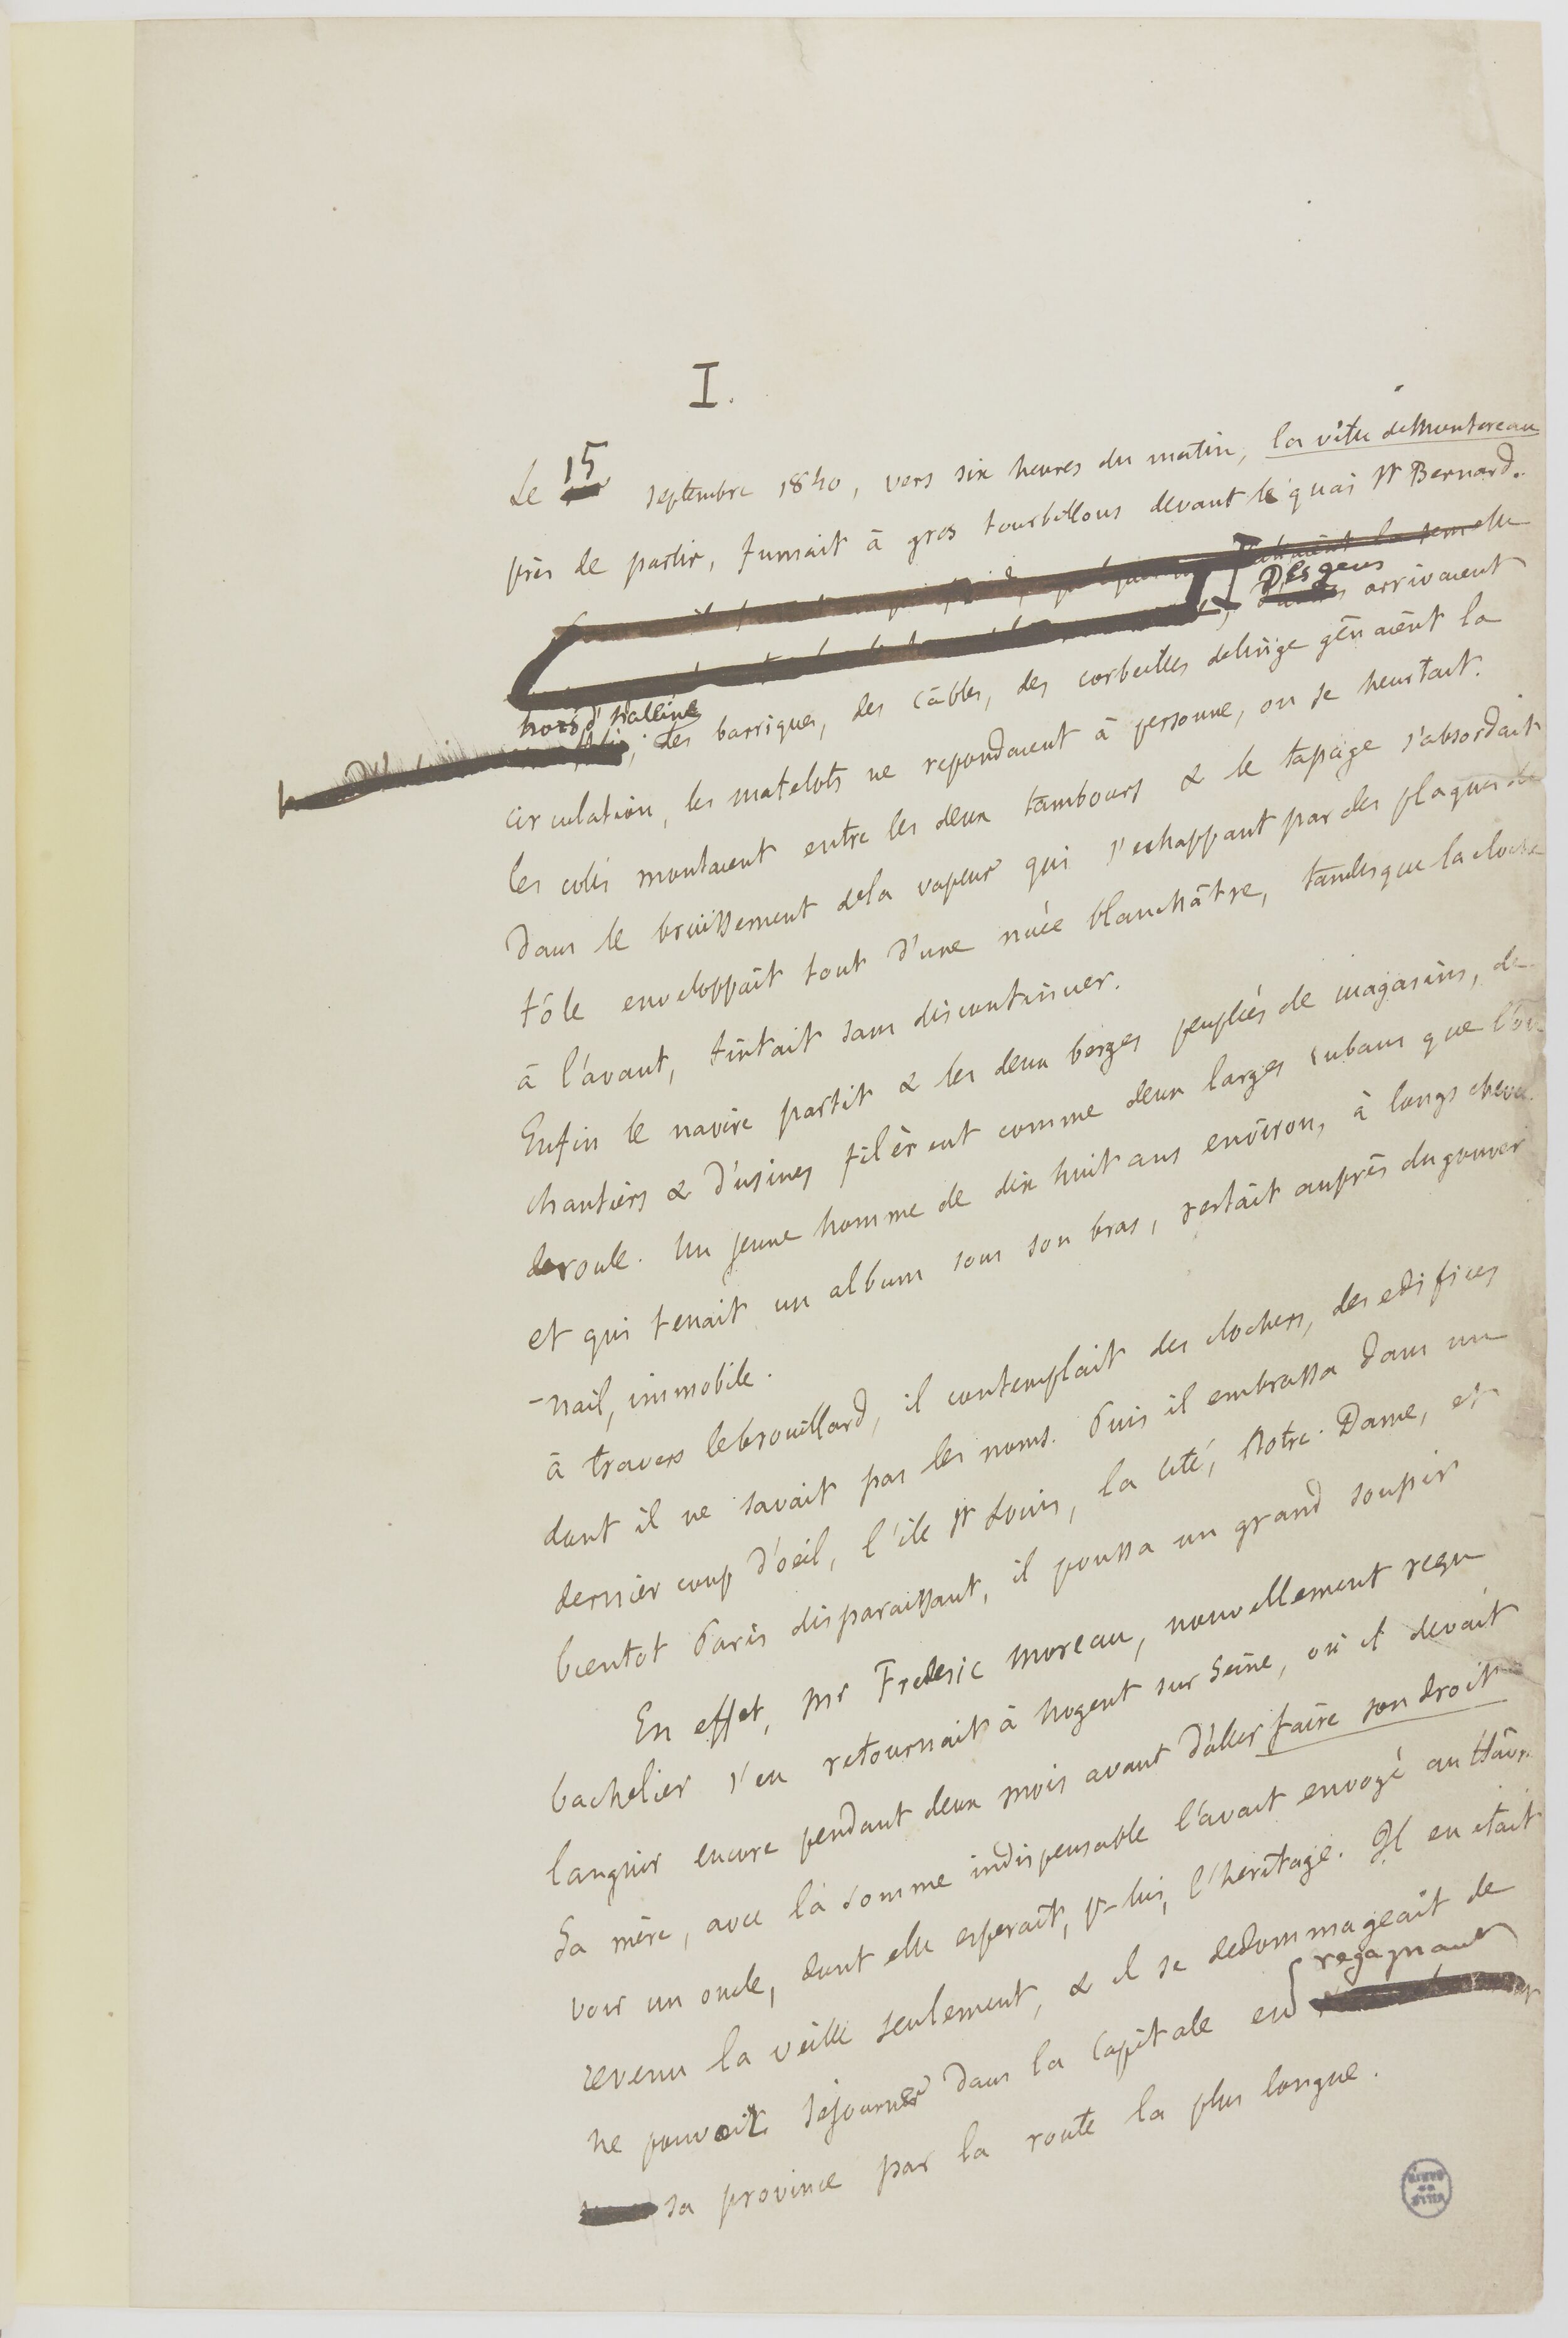 I.
Le 15 septembre 1840, vers six heures du matin, la ville de Montereau
près de partir, fumait à gros tourbillons devant le quai St Bernard.
Des gens
arrivaient
hors d'haleine
; des barriques, des câbles, des corbeilles de linge gênaient la
circulation, les matelots ne repondaient à personne, on se heurtait.
les colis montaient entre les deux tambours & le tapage s'absordait
Dans le bruissement de la vapeur qui s'echappant par des plaques de
tôle enveloppait tout d'une nuée blanchâtre, tandis que la cloche
à l'avant, tintait sans discontinuer.
Enfin le navire partit & les deux berges peuplées de magasins, de
chantiers & d'usines filèrent comme deux larges rubans que l'on
deroule. Un jeune homme de dix huit ans environ, à longs cheveux
et qui tenait un album sous son bras, restait auprès du gouver
-nail, immobile.
à travers le brouillard, il contemplait des clochers, des edifices
dont il ne savait pas les noms. Puis il embrassa dans un
dernier coup d'oeil, l'ile St Louis, la Cité, Notre-Dame, et
bientot Paris disparaissant, il poussa un grand soupir
En effet, Mr Frederic Moreau, nouvellement reçu
bachelier s'en retournait à Nogent sur Seine, où il devait
languir encore pendant deux mois avant d'aller faire son droit
Sa mère, avec la somme indispensable l'avait envoyé au Hâvre
voir un oncle, dont elle esperait, pr lui, l'heritage. Il en était
revenu la veille seulement, & il se dedommageait de
ne pouvoir sejourner dans la Capitale en regagnant
sa province par la route la plus longue.